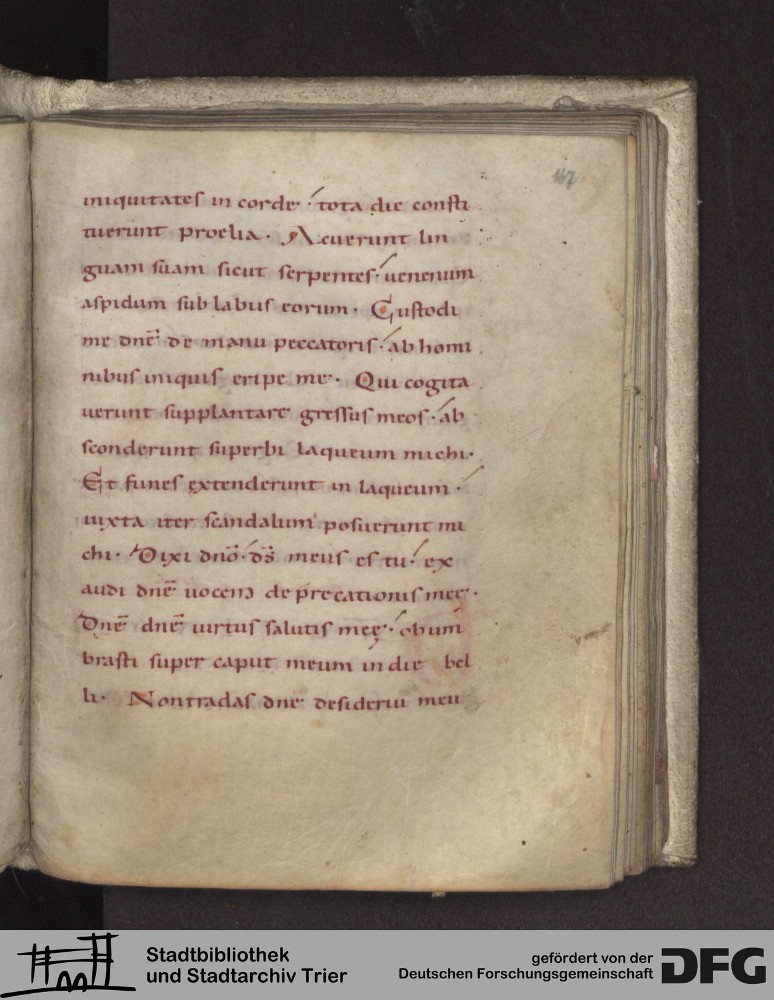 47
iniquitates in corde· tota die consti
tuerunt proelia· Acuerunt lin
guam suam sicut serpentes· uenenum
aspidum sub labiis eorum· Custodi
me dnē de manu peccatoris· ab homi
nibus iniquis eripe me· Qui cogita
uerunt supplantare gressus meos· ab
sconderunt superbi laqueum michi·
Et funes extenderunt in laqueum·
iuxta iter scandalum posuerunt mi
chi· Dixi dnō· ds̄ meus es tu· ex
audi dnē uocem deprecationis meę·
Dnē dnē uirtus salutis meę· obum
brasti super caput meum in die bel
li· Non tradas dne desideriu meu
Stadtbibliothek
und Stadtarchiv Trier
gefördert von der
Deutschen Forschungsgemeinschaft
DFG